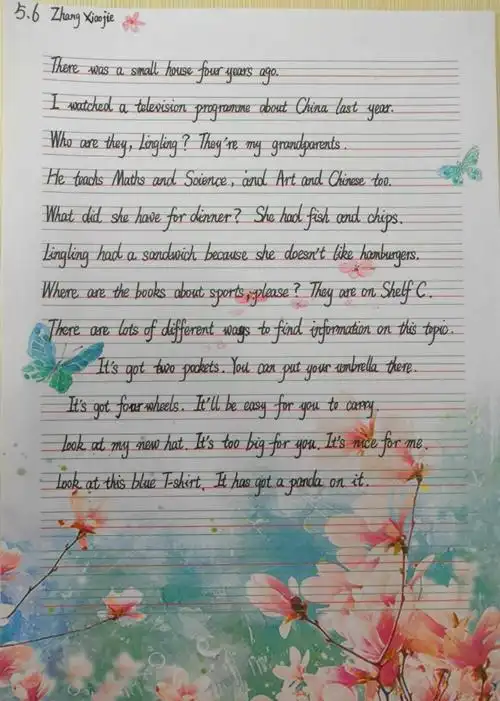 5.6 Zhang Xiaojie
There was a small house four years ago.
I watched a television programme about China last year.
Who are they, Lingling? They're my grandparents.
He teachs Maths and Science, and Art and Chinese too.
What did she have for dinner? She had fish and chips.
Lingling had a sandwich because she doesn't like hamburgers.
Where are the books about sports, please? They are on Shelf C.
There are lots of different ways to find information on this topic.
It's got two pockets. You can put your umbrella there.
It's got four wheels. It'll be easy for you to carry.
Look at my new hat. It's too big for you. It's nice for me.
Look at this blue T-shirt. It has got a panda on it.